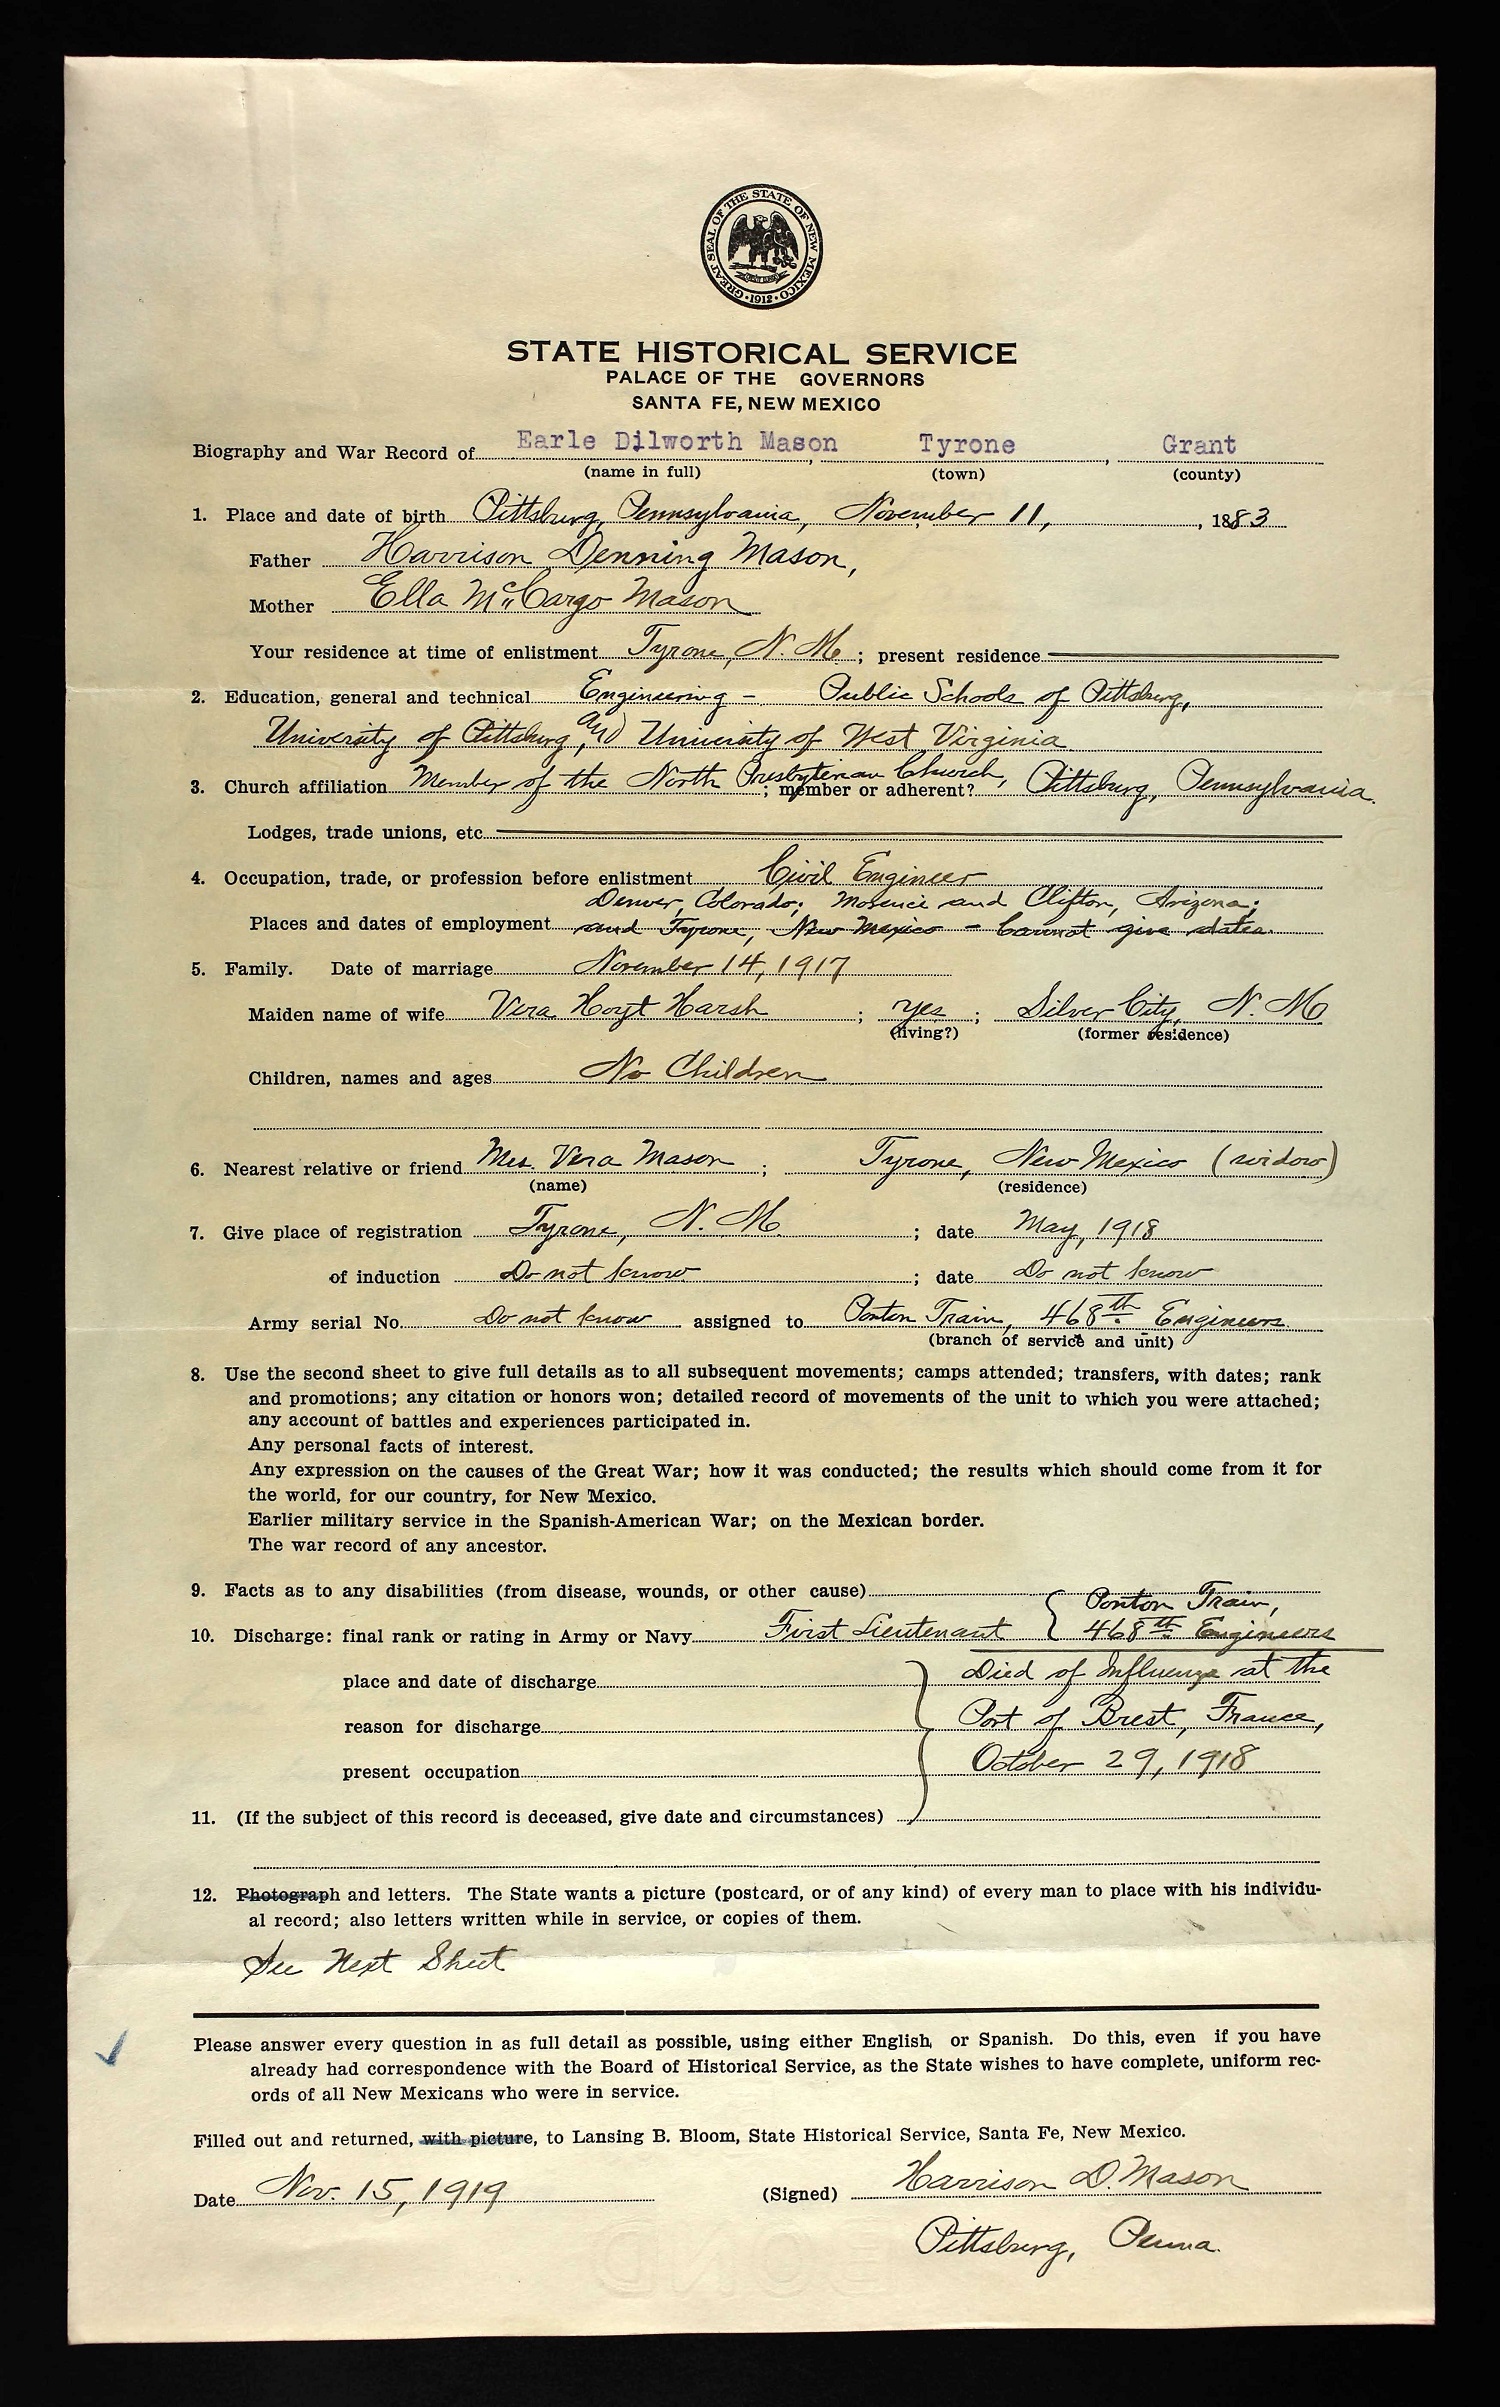 GREAT SEAL OF THE STATE OF NEW MEXICO
·1912·
STATE HISTORICAL SERVICE
PALACE OF THE GOVERNORS
SANTA FE, NEW MEXICO
Biography and War Record of Earle Dilworth Mason, Tyrone, Grant
(name in full) (town) (county)
1. Place and date of birth Pittsburg, Pennsylvania, November 11, , 1883
Father Harrison Denning Mason,
Mother Ella McCargo Mason
Your residence at time of enlistment Tyrone, N. M. ; present residence
2. Education, general and technical Engineering - Public Schools of Pittsburg,
University of Pittsburg, and University of West Virginia
3. Church affiliation Member of the North Presbyterian Church, Pittsburg, Pennsylvania.
; member or adherent?
Lodges, trade unions, etc.
4. Occupation, trade, or profession before enlistment Civil Engineer
Denver, Colorado; Morenci and Clifton, Arizona;
Places and dates of employment and Tyrone, New Mexico - Cannot give dates.
5. Family. Date of marriage November 14, 1917
Maiden name of wife Vera Hoyt Harsh ; yes ; Silver City, N. M
(living?) (former residence)
Children, names and ages No Children
6. Nearest relative or friend Mrs. Vera Mason ; Tyrone, New Mexico (widow)
(name) (residence)
7. Give place of registration Tyrone, N. M. ; date May, 1918
of induction Do not know ; date Do not know
Army serial No. Do not know assigned to Ponton Train, 468th Engineers
(branch of service and unit)
8. Use the second sheet to give full details as to all subsequent movements; camps attended; transfers, with dates; rank
and promotions; any citation or honors won; detailed record of movements of the unit to which you were attached;
any account of battles and experiences participated in.
Any personal facts of interest.
Any expression on the causes of the Great War; how it was conducted; the results which should come from it for
the world, for our country, for New Mexico.
Earlier military service in the Spanish-American War; on the Mexican border.
The war record of any ancestor.
9. Facts as to any disabilities (from disease, wounds, or other cause)
Ponton Train,
10. Discharge: final rank or rating in Army or Navy First Lieutenant { 468th Engineers
place and date of discharge Died of Influenza at the
reason for discharge Port of Brest, France,
present occupation October 29, 1918
11. (If the subject of this record is deceased, give date and circumstances)
12. Photograph and letters. The State wants a picture (postcard, or of any kind) of every man to place with his individu-
al record; also letters written while in service, or copies of them.
See Next Sheet
Please answer every question in as full detail as possible, using either English, or Spanish. Do this, even if you have
already had correspondence with the Board of Historical Service, as the State wishes to have complete, uniform rec-
ords of all New Mexicans who were in service.
Filled out and returned, with picture, to Lansing B. Bloom, State Historical Service, Santa Fe, New Mexico.
Date Nov. 15, 1919 (Signed) Harrison D. Mason
Pittsburg, Penna.